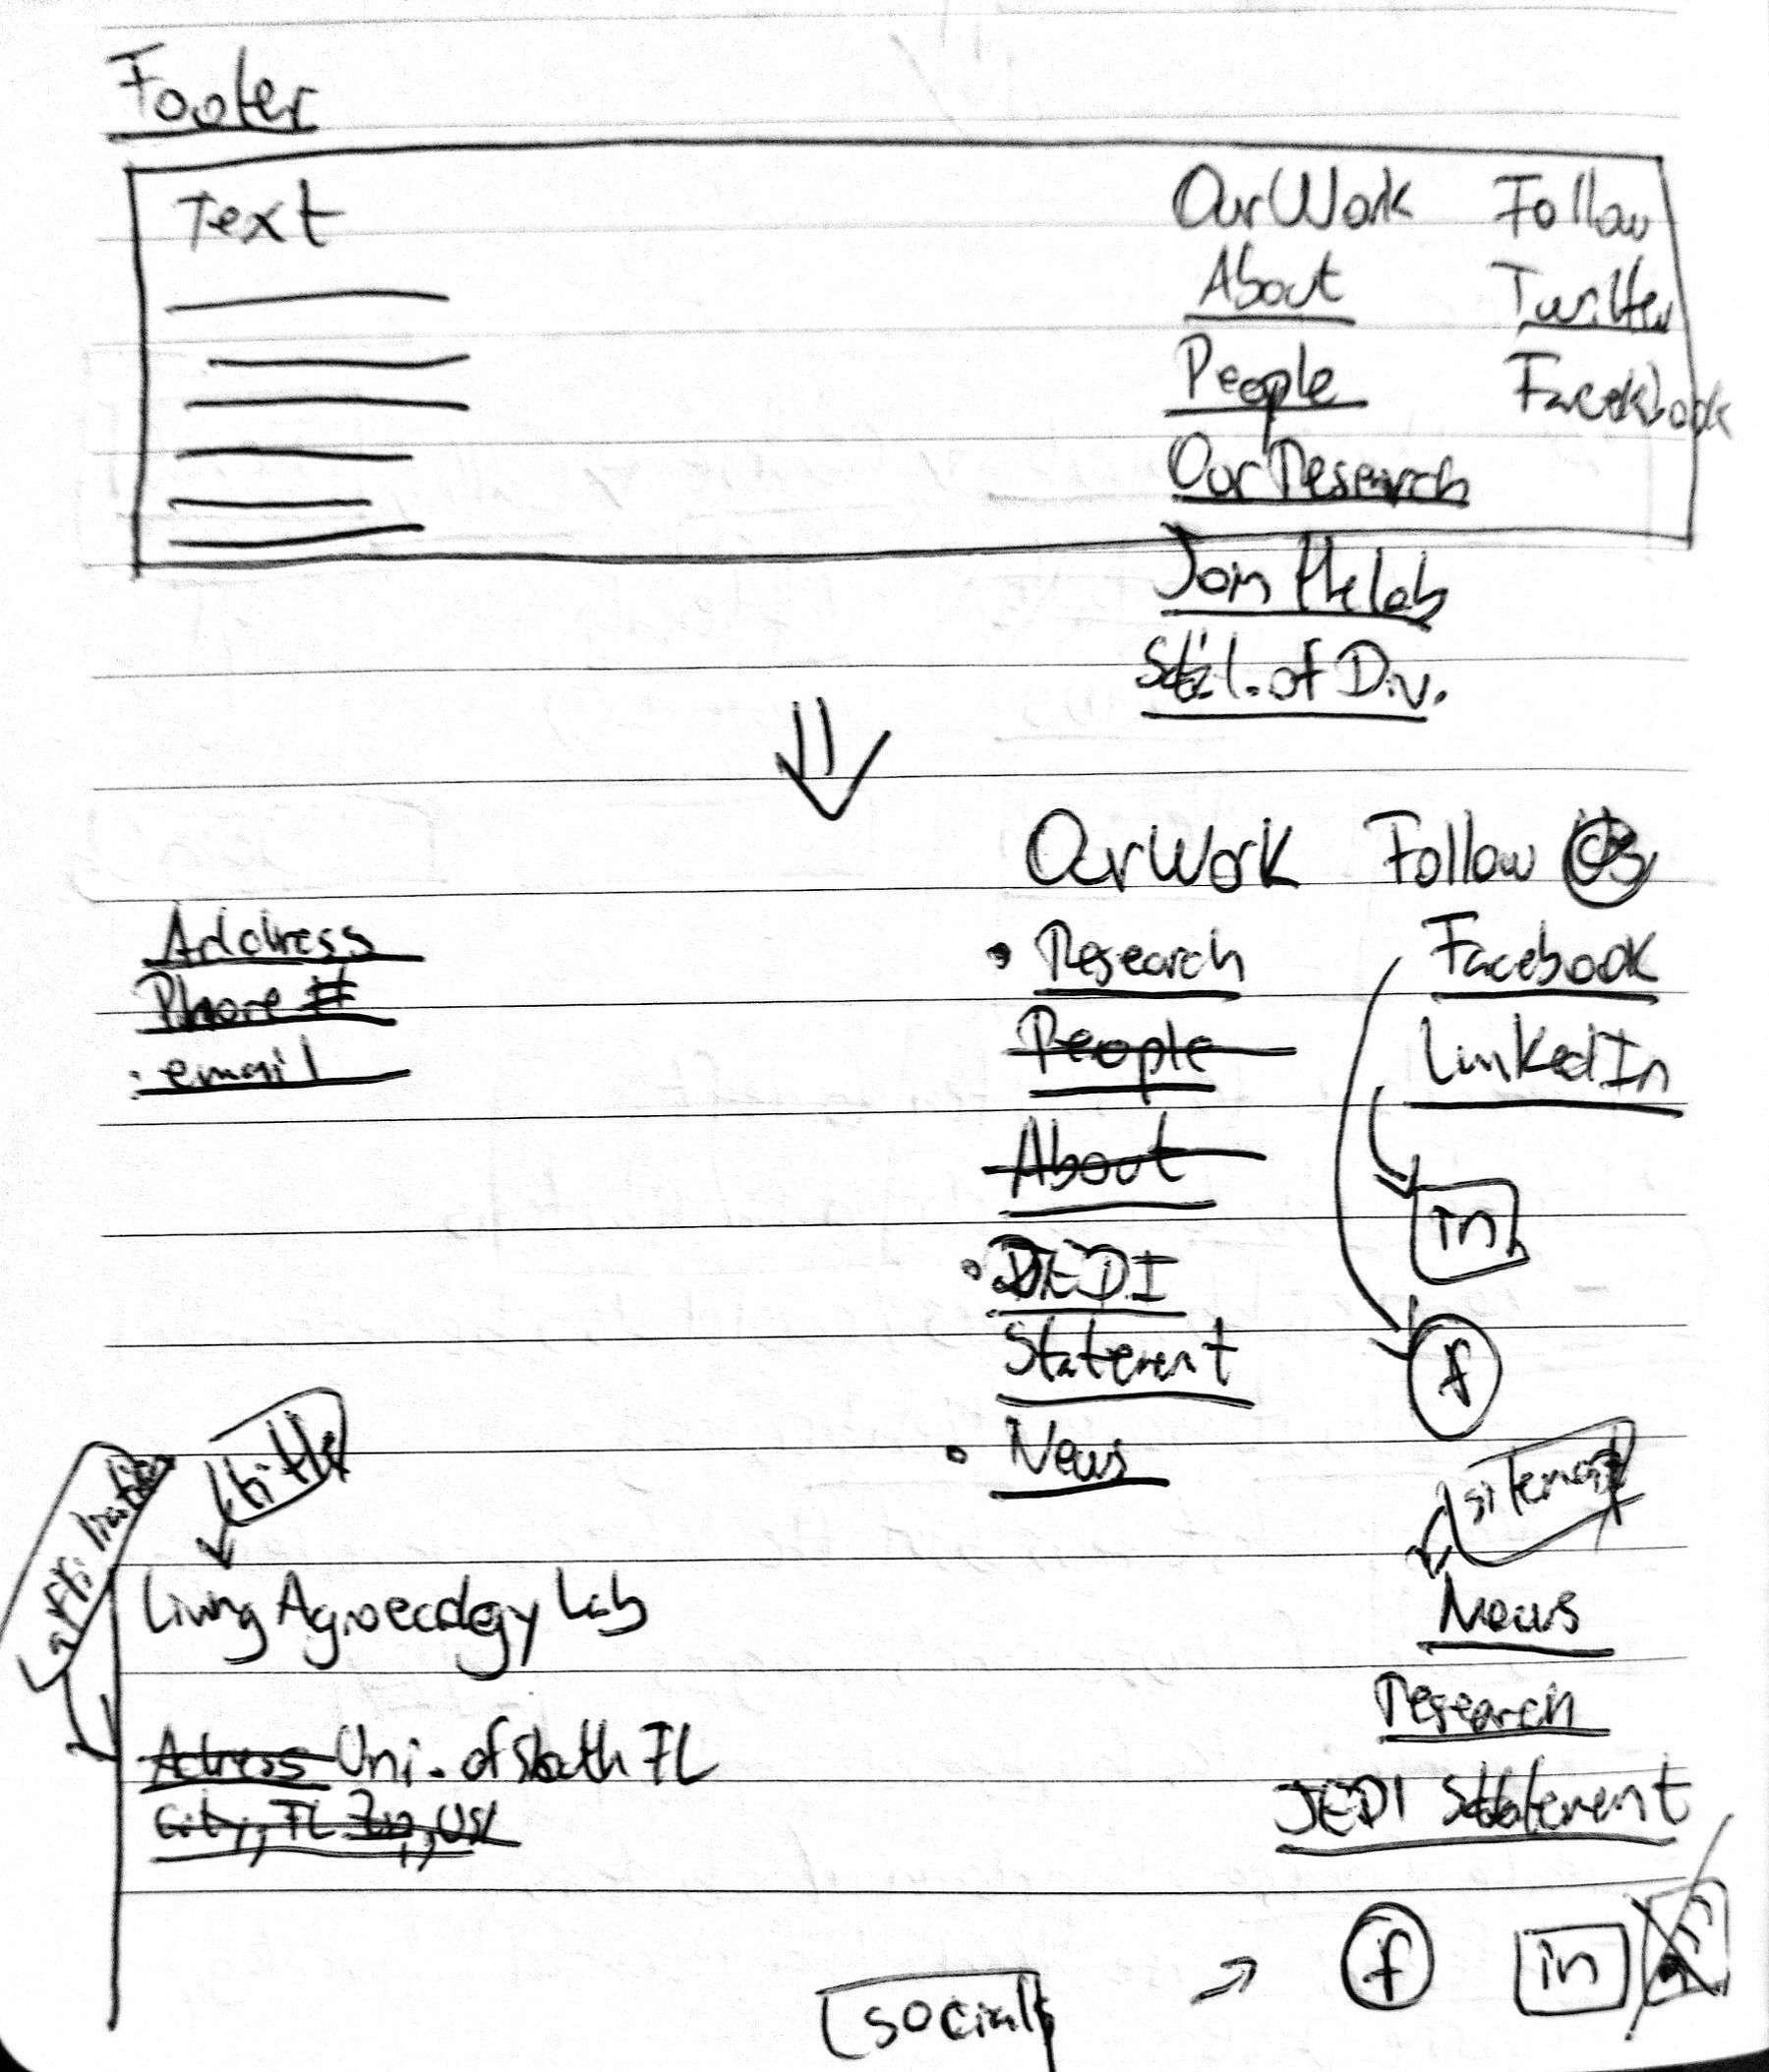 Footer
Text
Our Work Follow
About Twitter
People Facekbook
Our Research
Join the lab
of Div.
Our Work Follow
Address
Phone #
email
Research Facebook
People LinkedIn
About
in
JEDI
Statement
f
News
title
sitemap
Living Agroecology Lab
News
Research
Adress Uni. of South FL
City, FL Zip, USA
JEDI Statement
f in
social